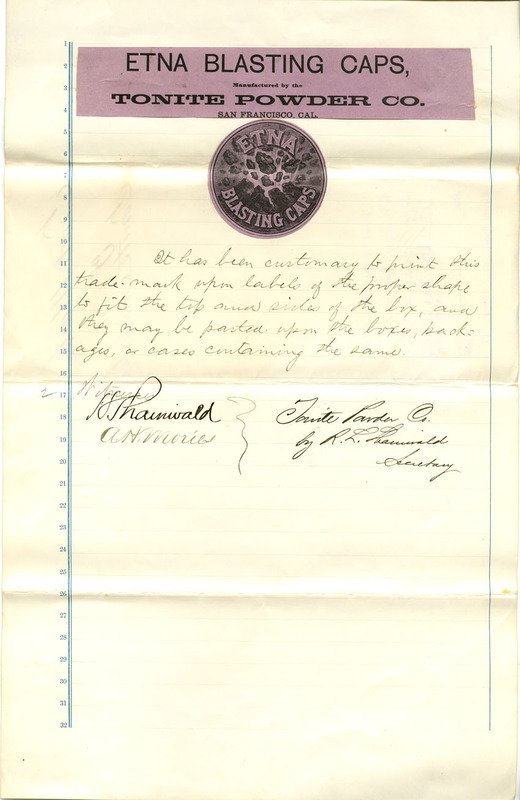 ETNA BLASTING CAPS,
Manufactured by the
TONITE POWDER CO.
SAN FRANCISCO, CAL.
ETNA
BLASTING CAPS
It has been customary to print this
trade-mark upon labels of the proper shape
to fit the top and sides of the box, and
they may be pasted upon the boxes, pack-
ages, or cases containing the same.
Witness
Tonite Powder Co.
by R. L.
Secretary
1
2
3
4
5
6
7
8
9
10
11
12
13
14
15
16
17
18
19
20
21
22
23
24
25
26
27
28
29
30
31
32